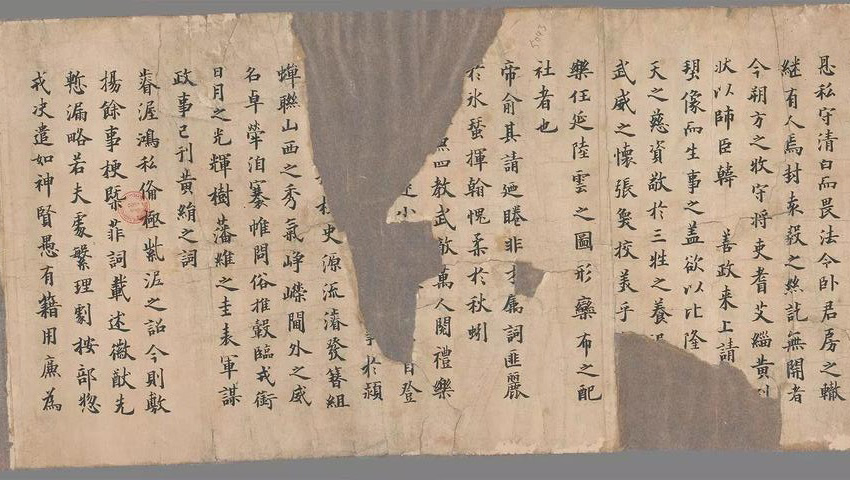 息私守清白而畏法令卧君房之轍
継有人焉封袁毅之絲訖無開者
今朔方之牧守将吏耆艾緇黄
狀以師臣韓 善政来上請
契像而生事之盖欲以比隆
天之慈資敬於三牲之養
武威之懷張奐挍美乎
樂任延陸雲之圖形欒布之配
社者也
帝俞其請廼睠非才属詞匪麗
於氷蚕揮翰愧柔於秋蚓
四教武敵萬人閱禮樂
小 自登
事於潁
史源流濬發簪組
蟬聯山西之秀氣峥嶸閫外之威
名卓犖洎褰帷問俗推轂臨戎銜
日月之光輝樹藩維之圭表軍謀
政事已刊黄絹之詞
睿渥鴻私倫極紫泥之詔今則敷
揚餘事梗槩菲詞載述徽猷先
慙漏略若夫豪繁理劇按部惣
戎决遣如神賢愚有籍用廉為
5043